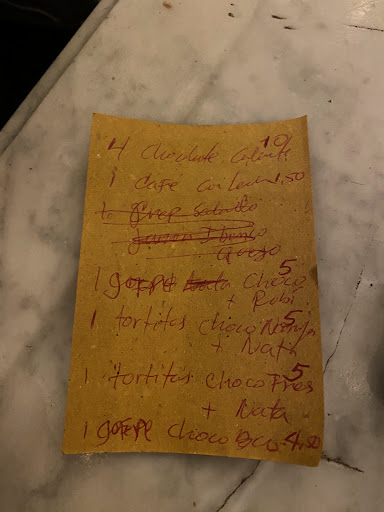 4 chocolate caliente 10
1 cafe con leche 1,50
1 gofre choco 5
+ Robi
1 tortitas choco Naranja 5
+ Nata
1 tortitas choco Fres 5
+ Nata
1 gofre choco Bco 4,50